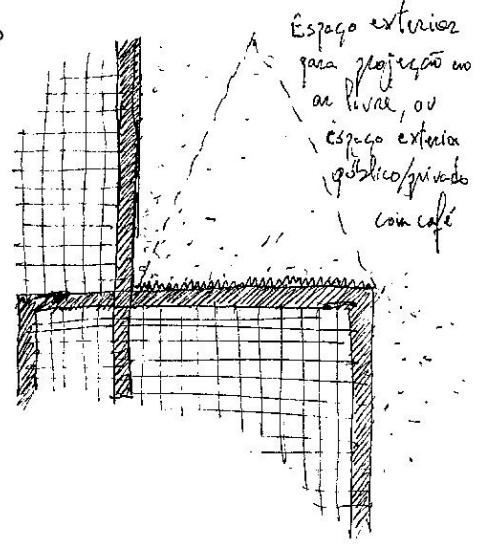 Espaço exterior
para projeção no
ar livre, ou
espaço exterior
público/privado
com café